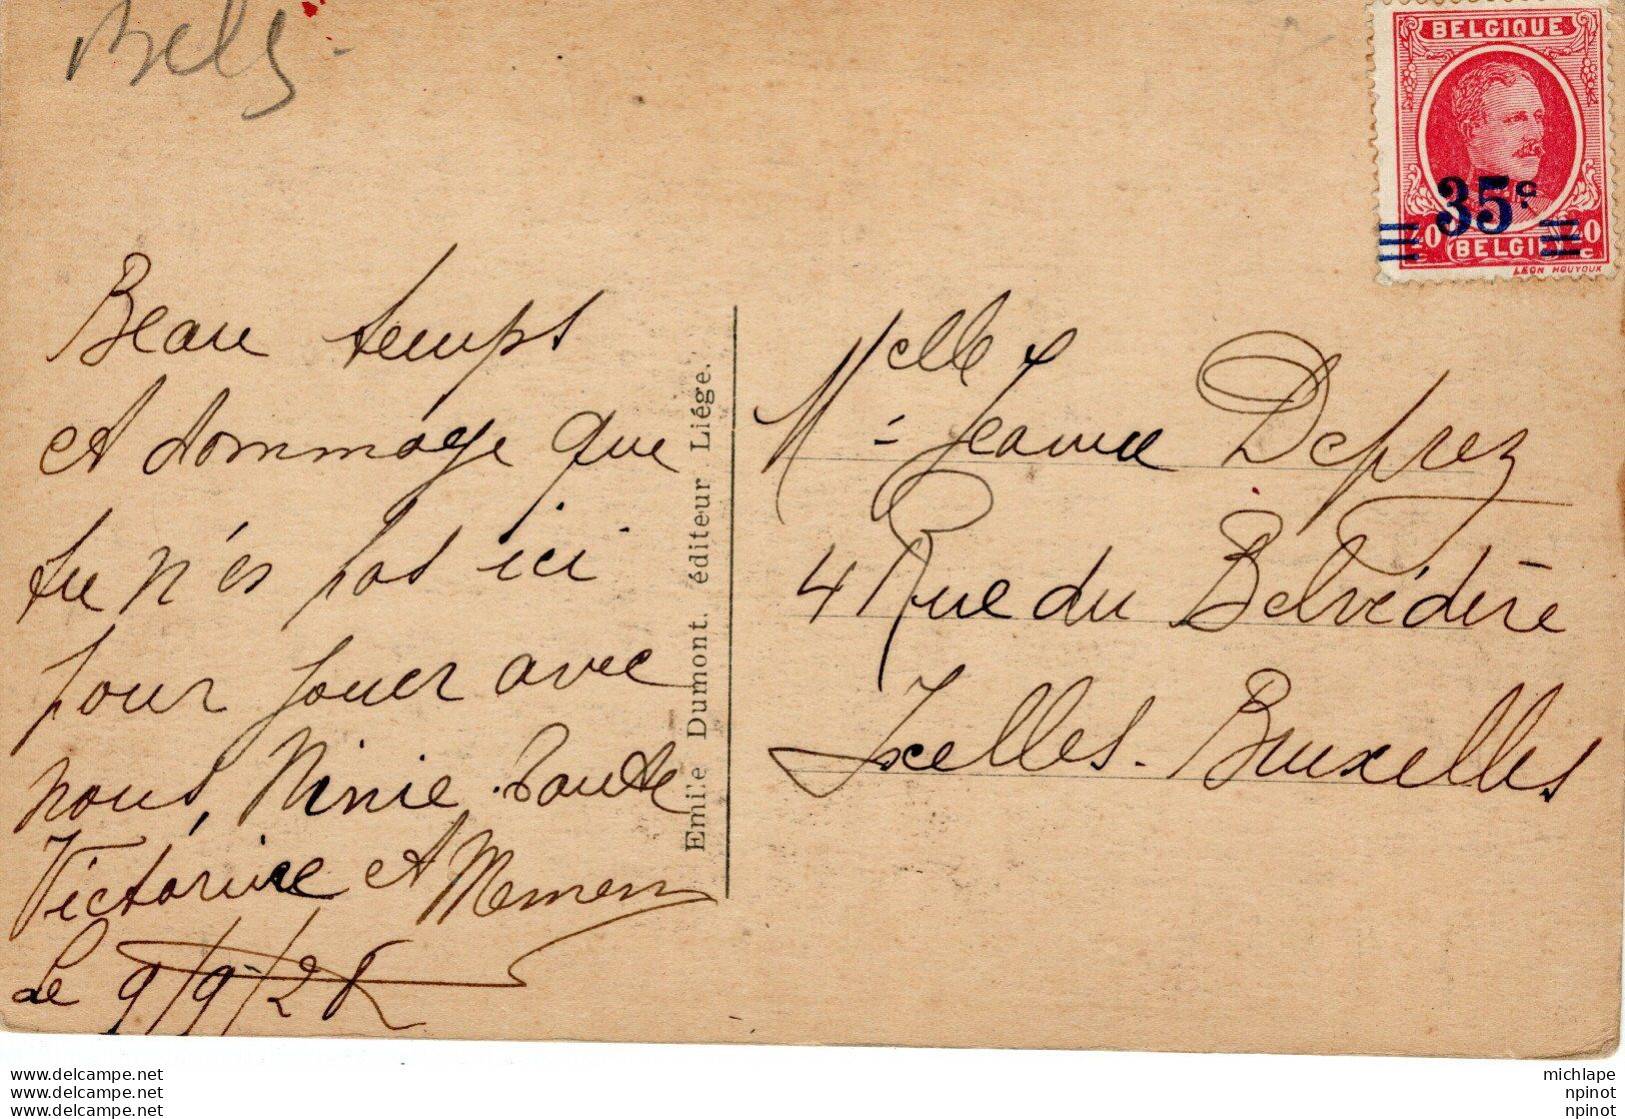 Belg
BELGIQUE
35c
BELGIË
LEON HOUYOUX
Beau temps
et dommage que
tu n'es pas ici
pour jouer avec
nous, Ninie, Tante
Victorine et Memen
Le 9/9/28
Emile Dumont. éditeur Liége.
Melle Jeanne Deprez
4 Rue du Belvédère
Ixelles - Bruxelles
www.delcampe.net
www.delcampe.net
www.delcampe.net
michlape
npinot
npinot